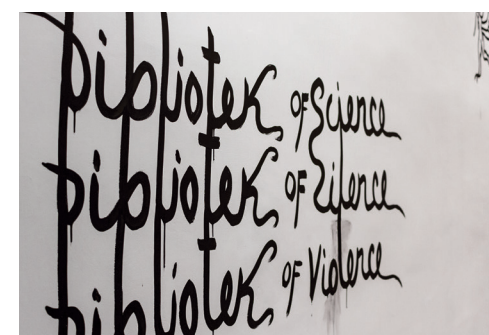 Bibliotek of Science
Bibliotek of Silence
Bibliotek of Violence
Bibliotek